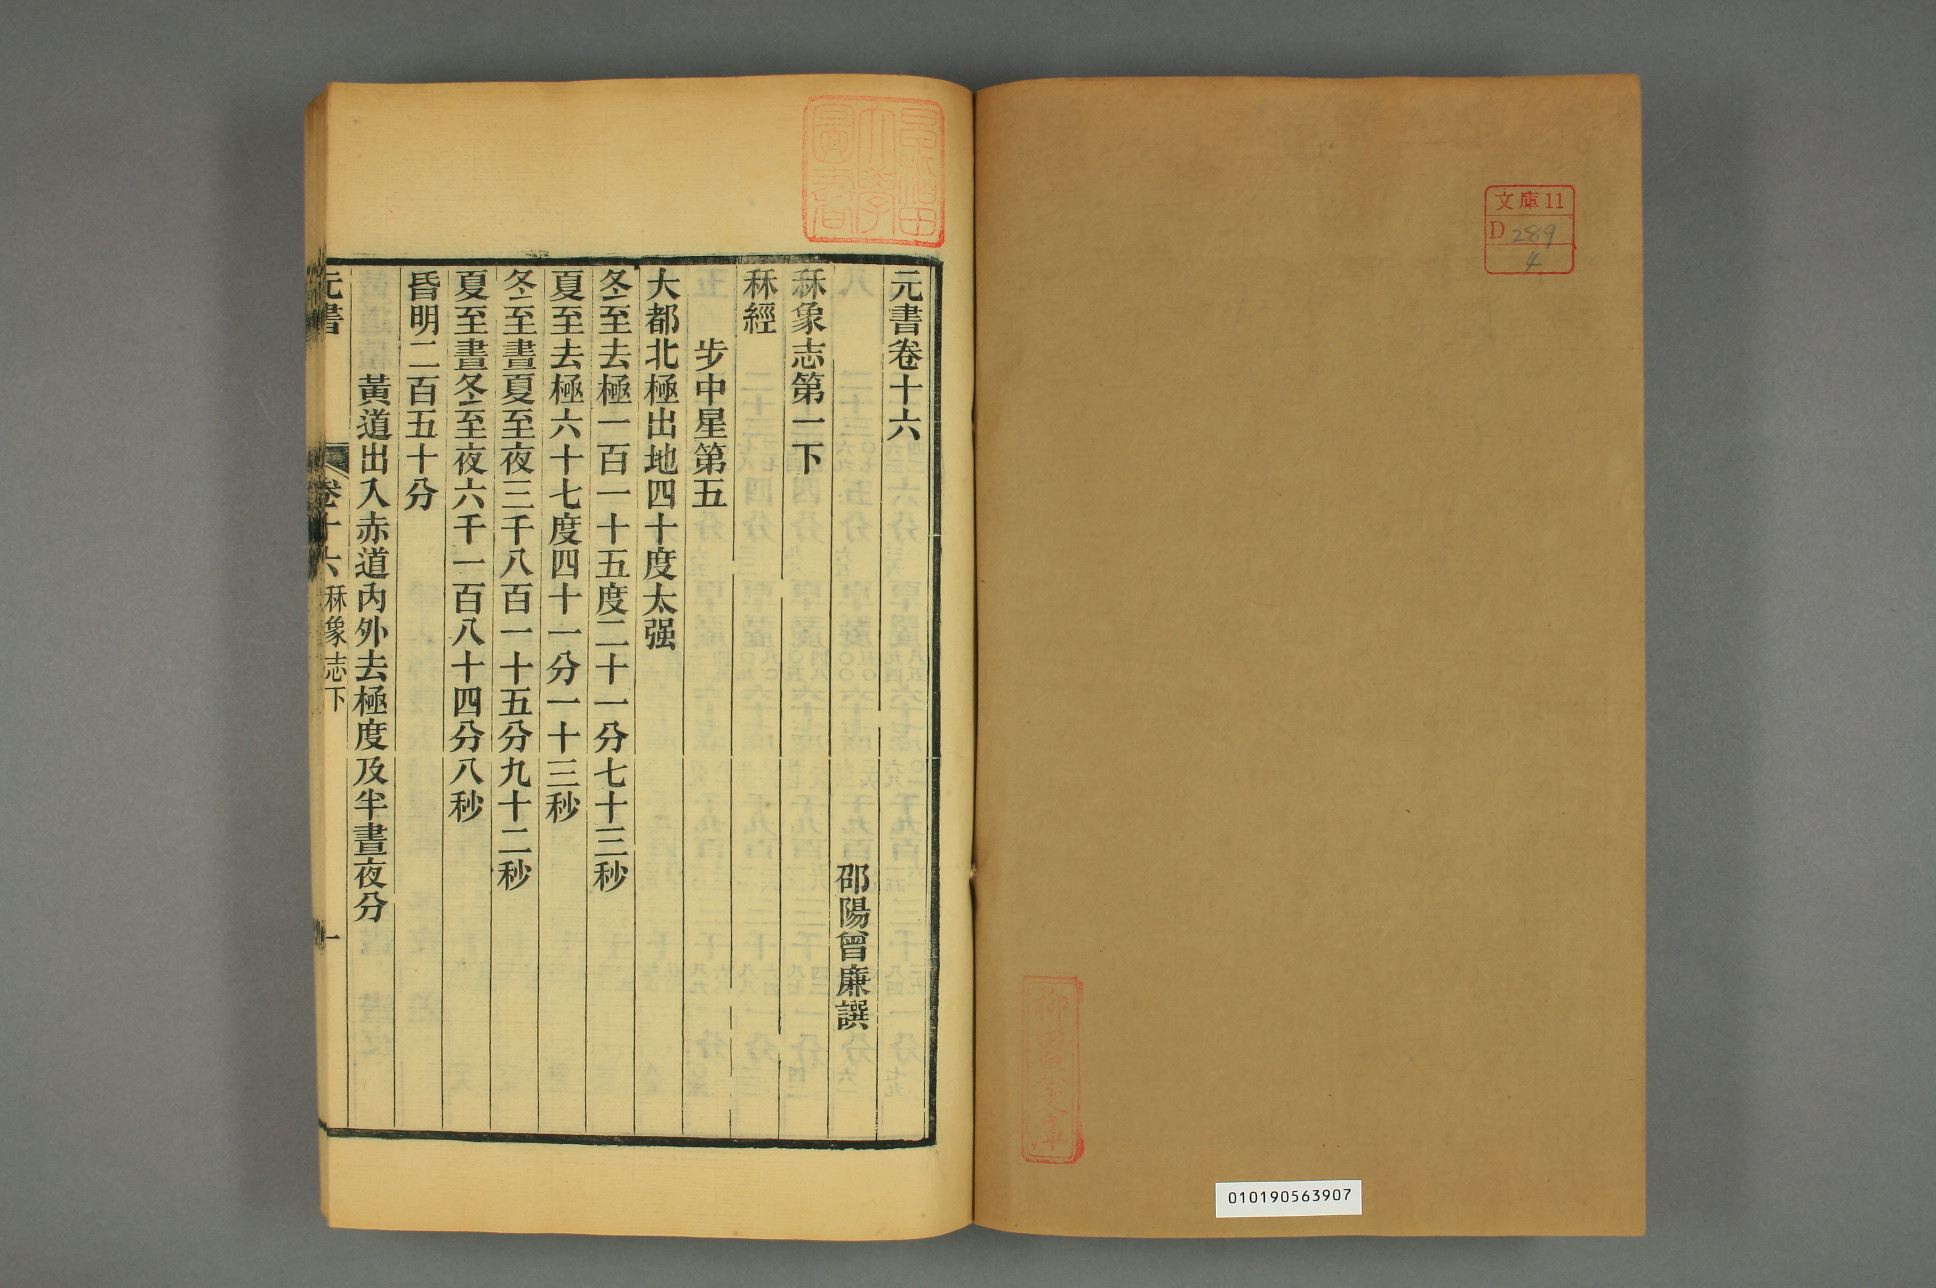 文庫11
D 289
4
柳田泉文庫
010190563907
早稲田
大學
圖書
元書卷十六
邵陽曾廉譔
秝象志第一下
秝經
步中星第五
大都北極出地四十度太强
冬至去極一百一十五度二十一分七十三秒
夏至去極六十七度四十一分一十三秒
冬至晝夏至夜三千八百一十五分九十二秒
夏至晝冬至夜六千一百八十四分八秒
昏明二百五十分
黃道出入赤道內外去極度及半晝夜分
元書 卷十六秝象志下 一